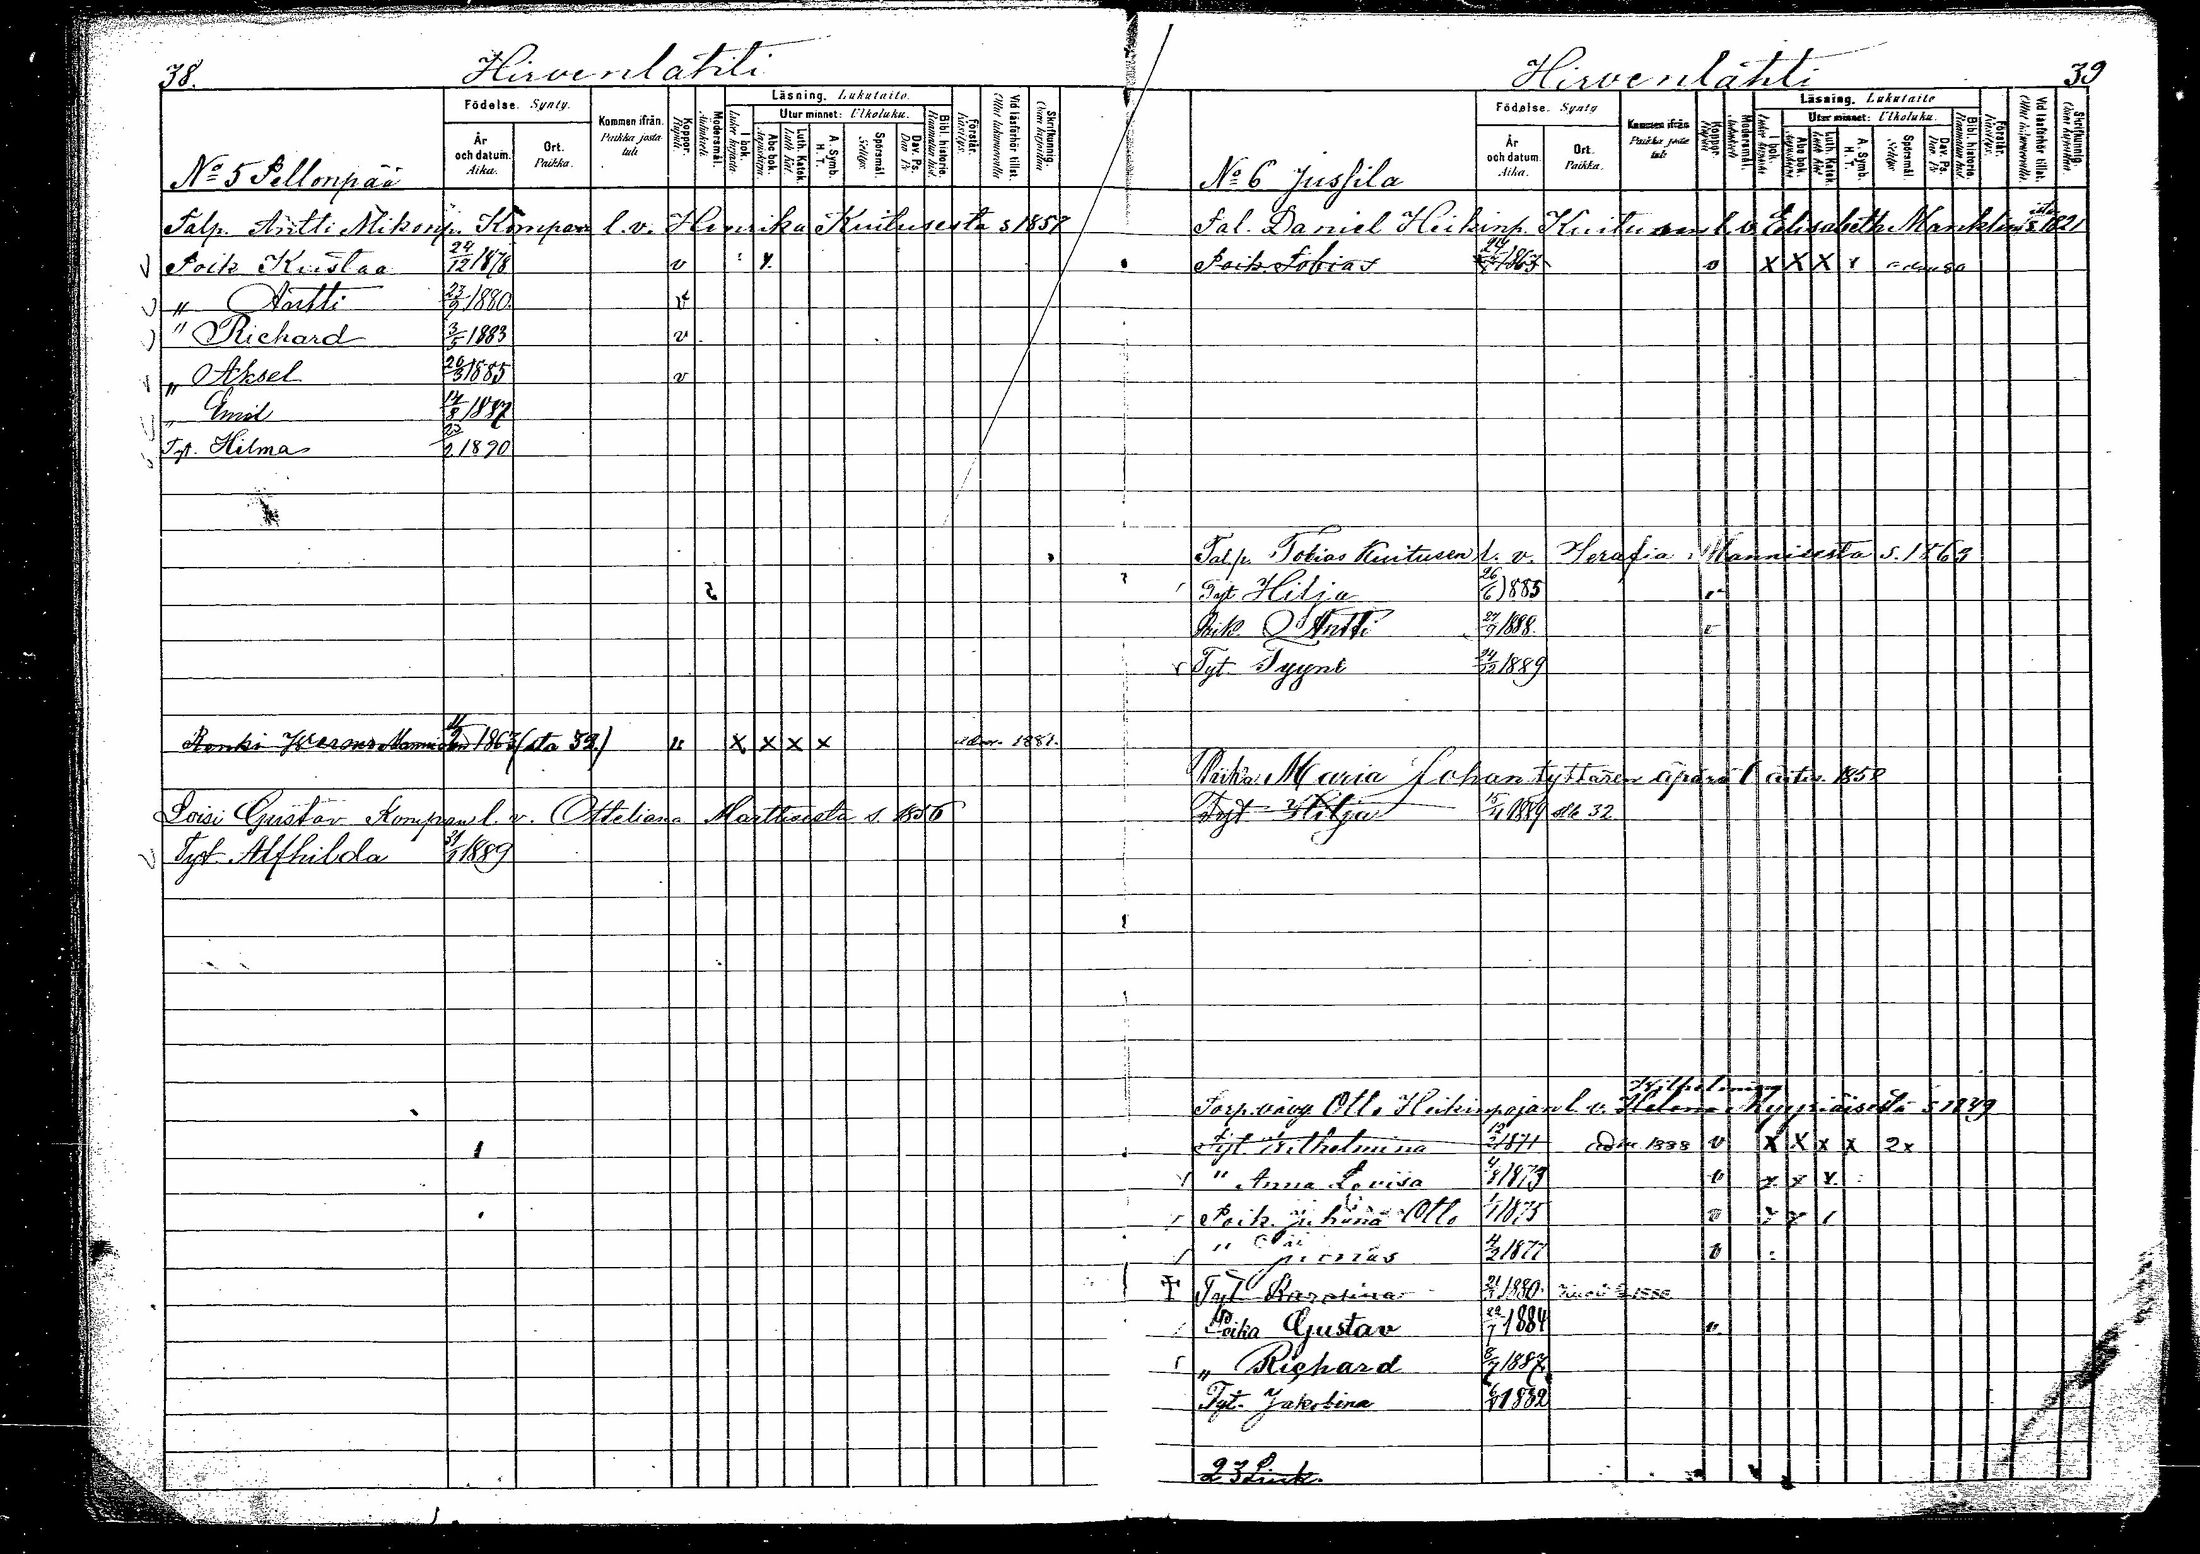 38.
Hirvenlahti
Födelse. Synty.
År och datum. Aika.
Ort. Paikka.
Kommen ifrån. Paikka josta tuli
Koppor. Rupuli.
Modersmål. Äidinkieli
Läsning. Lukutaito.
I bok. Lukee kirjasta
Utur minnet: Ulkoluku.
Abc bok. Aapiskirja.
Luth. Katek. Luth. Kat.
A. Symb. H. T.
Spörsmål. Selitys.
Dav. Ps. Dav. Ps.
Bibl. historia. Raamatun hist.
Förstår. Käsitys.
Vid läsförhör tillst. Ollut lukuseuroilla
Skrifkunnig. Osaa kirjoittaa
No 5 Pellonpää
Talp. Antti Mikonp. Kompan l. v. Henrika Kuitusesta s 1857
Poik Kustaa 24/12 1878 v
" Antti 23/9 1880.
" Richard 3/5 1883 v
" Aksel 26/3 1885 v
" Emil 14/8 1887
Tyt. Hilma 1890
Renki Werner Mannisen 1863 (sta 39.) v X X X X adm. 1881.
Loisi Gustav Kompan l. v. Otteliana Marttisesta s. 1856
Tyt. Alfhilda 31/1 1889
Hirvenlahti
39
Födelse. Synty
År och datum. Aika.
Ort. Paikka.
Kommen ifrån Paikka josta tuli
Koppor. Rupuli
Modersmål. Äidinkieli
Läsning. Lukutaito
I bok. Lukee kirjasta
Utur minnet: Ulkoluku.
Abc bok. Aapiskirja
Luth. Katek. Luth. Kat
A. Symb. H. T.
Spörsmål. Selitys.
Dav. Ps. Dav. Ps.
Bibl. historia. Raamatun hist.
Förstår. Käsitys.
Vid läsförhör tillst. Ollut lukuseuroilla.
Skrifkunnig. Osaa kirjoittaa.
No 6 Jussila
Tal. Daniel Heikinp. Kuitusen l. v. Elisabeth s. 1821
Poik Tobias 1863 v X X X
Talp. Tobias Kuitusen l. v. Serafia Mannisesta s. 1863
Tyt Hilja 26/6 1885
Poik. Antti 27/9 1888.
Tyt. Tyyne 24/12 1889
Piika Maria Johan tyttären äpärä l. äitis. 1858
Tyt Hilja 15/4 1889 32
Torp. vävy Otto Heikinpojan l. v. Helena Wilhelmina Kyyriäisestä s 1849
Tyt. Wilhelmina 12/2 1871 adm. 1888 v X X X X 2x
" Anna Lovisa 4/8 1873 v x x x
Poik. Juhana Otto 1/1 1875 v
" 4/2 1877 v
Tyt Karolina 1880.
Poika Gustav 1884 v
" Richard 8/7 1887
Tyt. Jakobina 1882
23